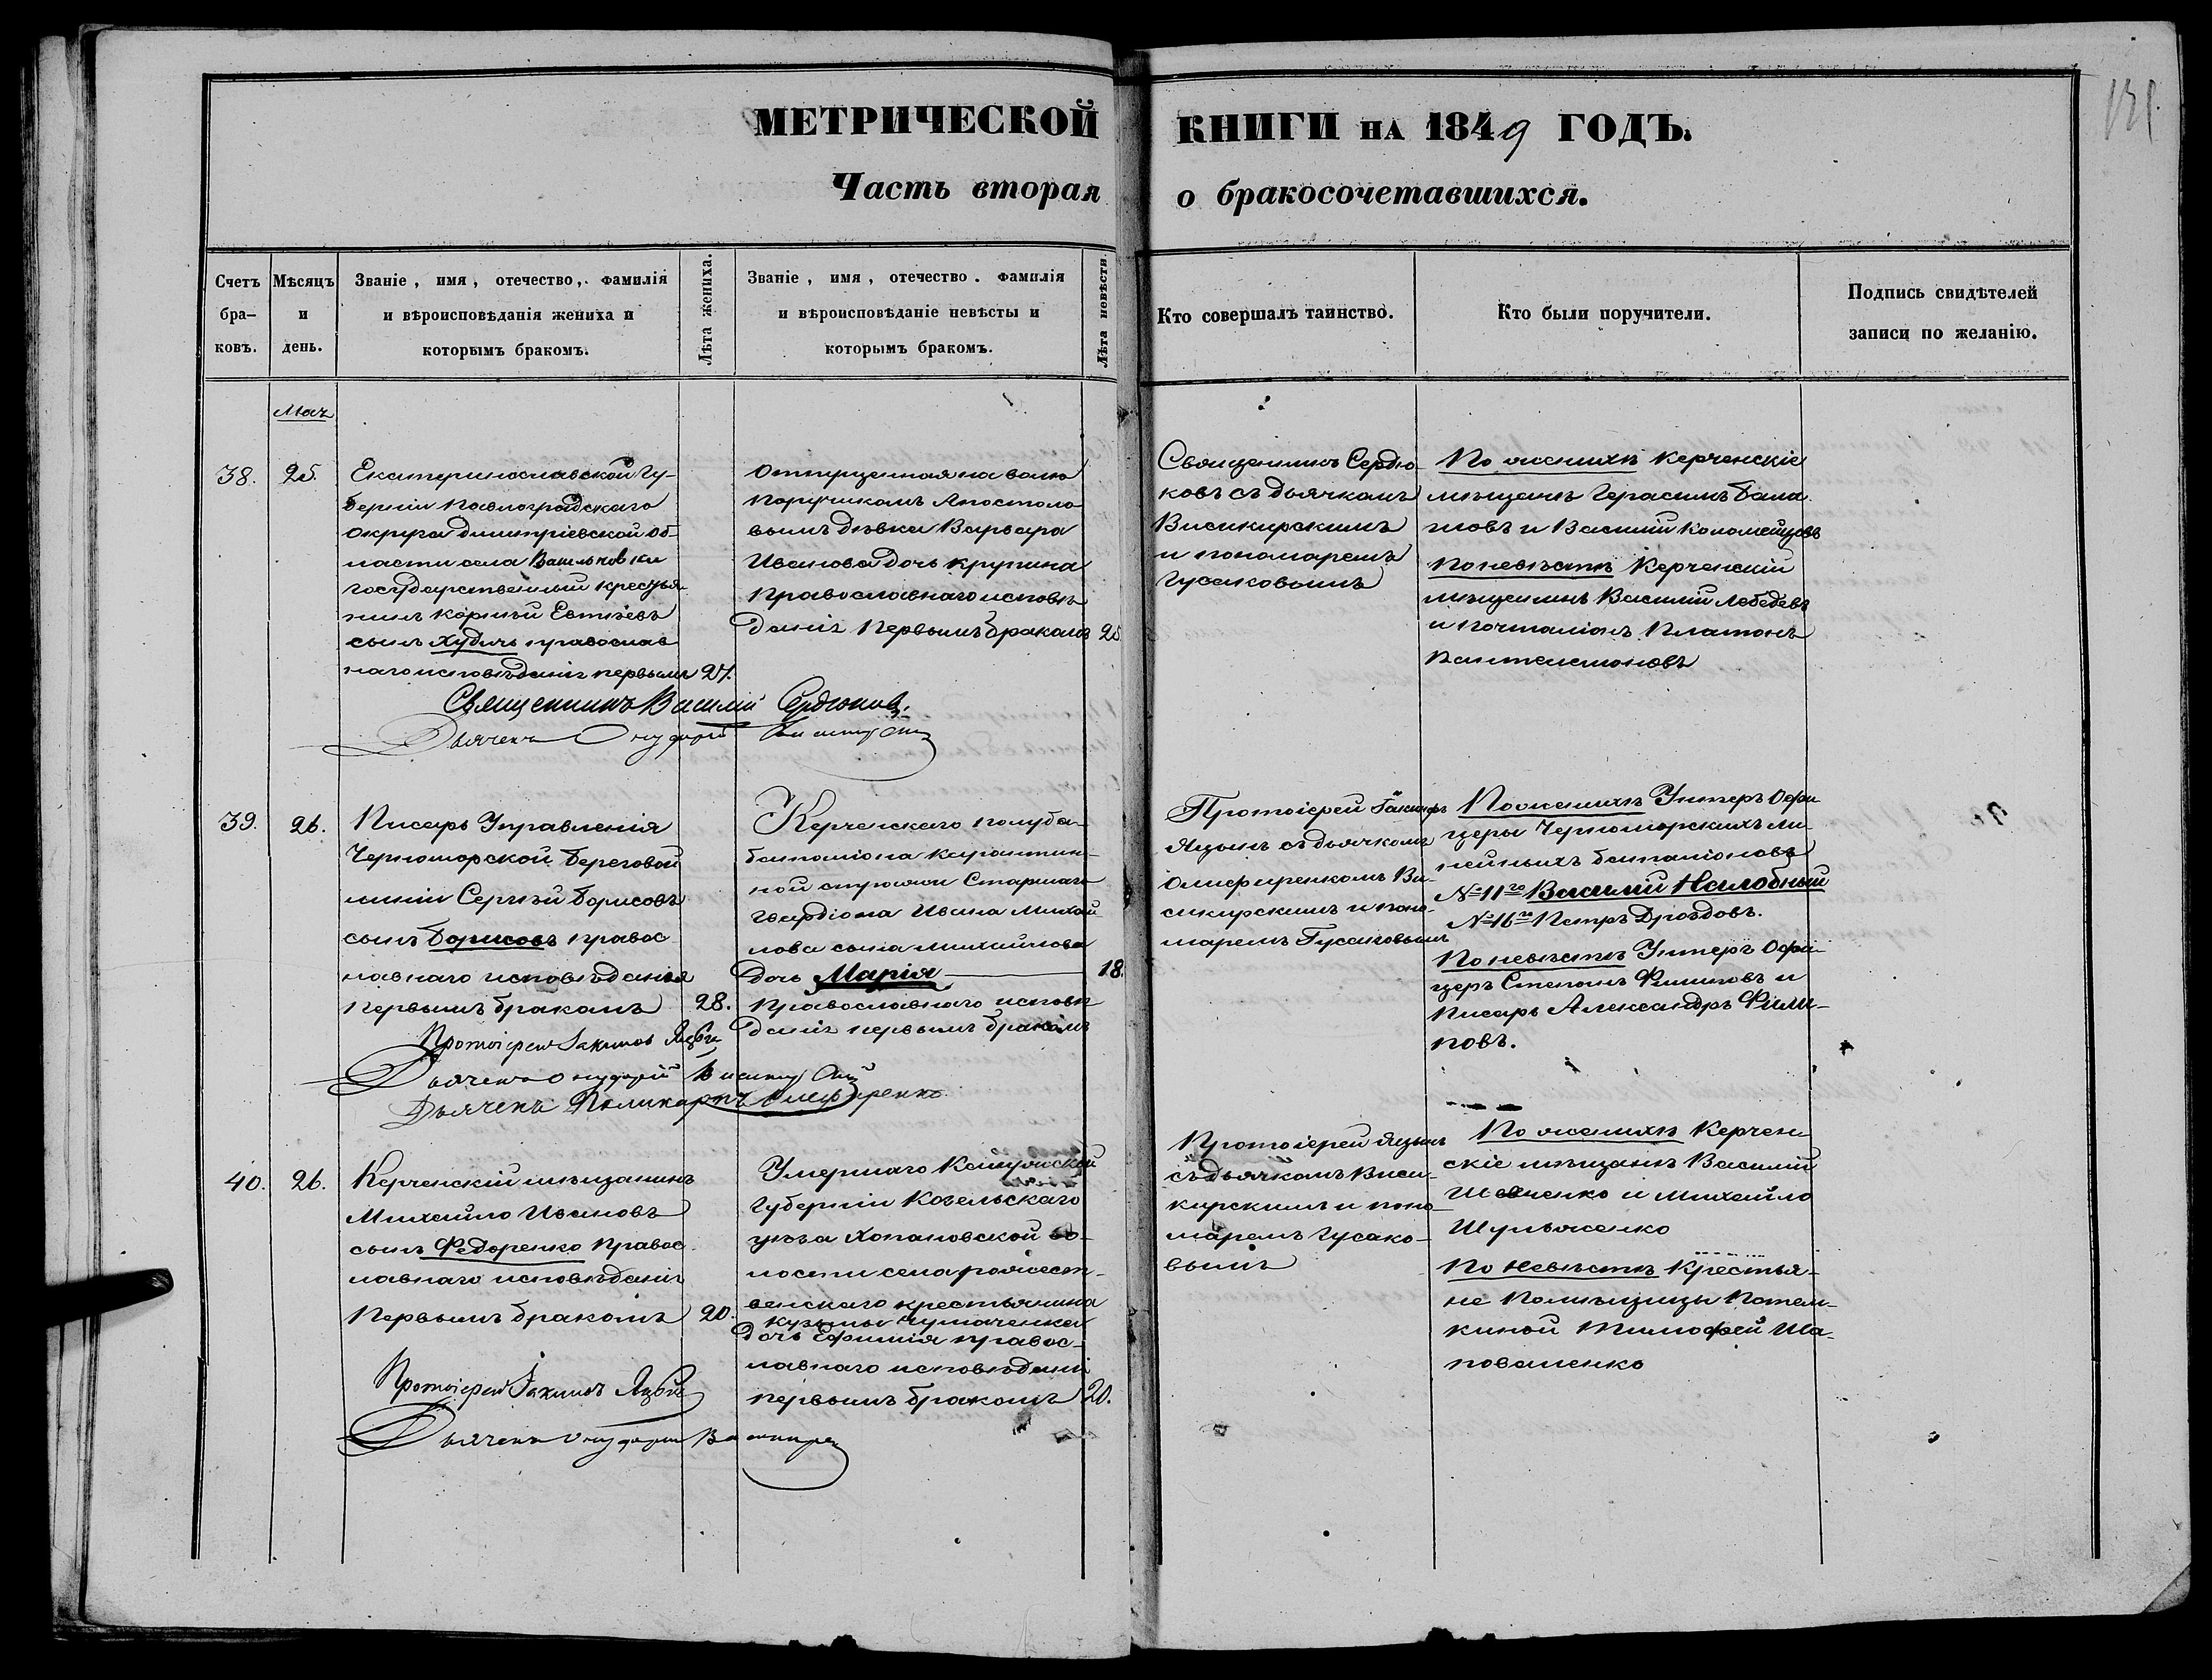 МЕТРИЧЕСКОЙ КНИГИ НА 1849 ГОДЪ.
Часть вторая о бракосочетавшихся.
Счетъ бра-ковъ.
Мѣсяцъ и день.
Званіе, имя, отечество, фамилія
и вѣроисповѣданія жениха и
которымъ бракомъ.
Лѣта жениха.
Званіе, имя, отечество. фамилія
и вѣроисповѣданіе невѣсты и
которымъ бракомъ.
Лѣта невѣсти.
Кто совершалъ таинство.
Кто были поручители.
Подпись свидѣтелей
записи по желанію.
38.
25.
Екатеринославской Гу-
берніи Павлоградскаго
округа Димитріевской об-
ласти села
государственный крестья
нинъ Корнѣй Евтіѣевъ
сынъ Худичъ православ
наго исповѣданія первымъ
27.
Отпущенная на волю
Поручикомъ Апостоло
вымъ дѣвка Варвара
Иванова дочь Крупина
православнаго исповѣ
данія первымъ бракомъ
25
Священникъ Сердю
ковъ съ дьячкомъ
Висикирскимъ
и пономаремъ
Гусаковымъ
По женихѣ Керченскіе
мѣщане Герасимъ Бала
шовъ и Василій Коломейцовъ
По невѣстѣ Керченскій
мѣщанинъ Василій Лебедевъ
и почталіонъ Платонъ
Пантелемоновъ
Священникъ Василій Сердюковъ.
Дьячекъ Онуфрій
39.
26.
Писарь Управленія
Черноморской Береговой
линіи Сергѣй Борисовъ
сынъ Борисовъ правос
лавнаго исповѣданія
первымъ бракомъ
28.
Керченскаго полуба-
баталіона карантин-
ной стражи Старшаго
Гвардіона Ивана Михай
лова сына Михайлова
дочь Марія
18.
Православнаго исповѣ
данія первымъ бракомъ
Протоіерей Іакинфъ
Язынъ съ дьячкомъ
Олифиренкомъ Ви-
сикирскимъ и поно-
маремъ Гусаковымъ
По женихѣ Унтеръ Офи
церы Черноморскихъ ли-
нейныхъ баталіоновъ
№ 11го Василій Налобный
№ 16го Петръ Дроздовъ.
По невѣстѣ Унтеръ Офи-
церъ Степанъ Филиповъ и
Писарь Александръ Фили-
повъ.
Протоіерей
Дьячекъ Онуфрій
Дьячекъ Поликарпъ Олифиренко
40.
26.
Керченскій мѣщанинъ
Михайло Ивановъ
сынъ Федоренко Правос
лавнаго исповѣданія
первымъ бракомъ
20.
Умершаго Калужской
Губерніи Козельскаго
уѣзда Хопановской во-
лости села рожест-
венскаго крестьянина
Кузьмы Чумаченка
дочь Ефимія правос-
лавнаго исповѣданія
первымъ бракомъ
20.
Протоіерей Язынъ
съ дьячкомъ Виси-
кирскимъ и поно-
маремъ Гусако-
вымъ
По женихѣ Керчен
скіе мѣщане Василій
Шевченко и Михайло
Шульженко
По невѣстѣ Крестья-
не Помѣщицы Потем-
киной Тимофей Ша-
поваленко
Протоіерей
Дьячекъ Онуфрій